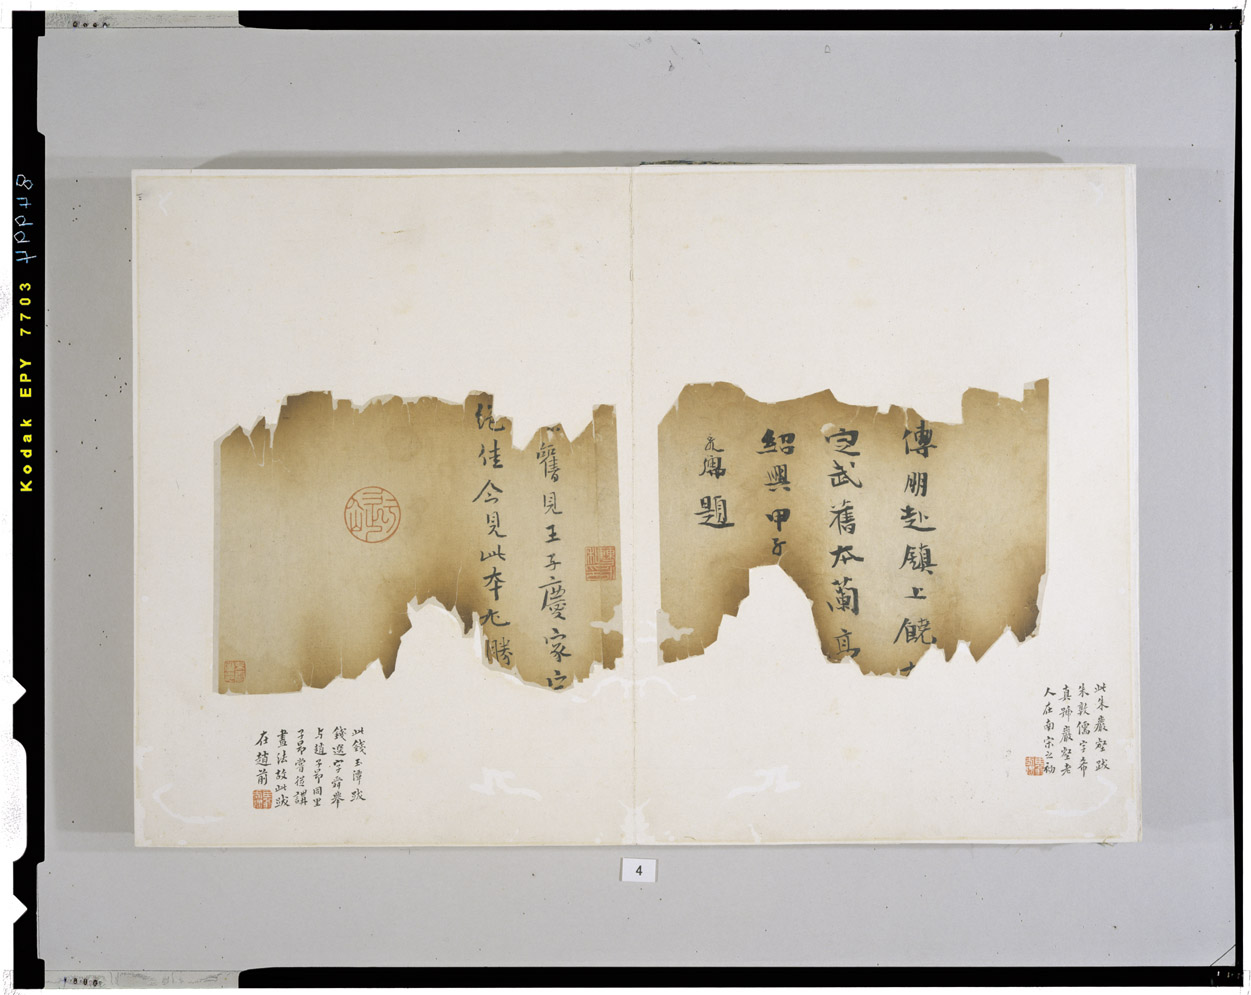 傅朋赴鎮上饒
定武舊本蘭亭
紹興甲子
題
此朱巖壑跋
朱敦儒字希
真號巖壑老
人在南宋之初
舊見王子慶家定
絕佳今見此本尤勝
此錢玉潭跋
錢選字舜舉
与趙子昂同里
子昂嘗從講
畫法故此跋
在趙前
4
Kodak EPY 7703